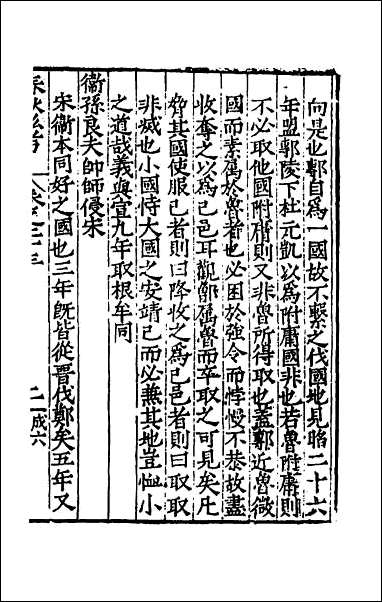 向是也鄟自爲一國故不繫之伐國地見昭二十六
年盟鄟陵下杜元凱以爲附庸國非也若魯附庸則
不必取他國附庸則又非魯所得取也蓋鄟近魯微
國而素屬於魯者也必困於強令而悖慢不恭故盡
收奪之以爲己邑耳觀鄫舊魯而卒取之可見矣凡
脅其國使服己者則曰降收之爲己邑者則曰取取
非滅也小國恃大國之安靖己而必兼其地豈恤小
之道哉義與宣九年取根牟同
衞孫良夫帥師侵宋
宋衞本同好之國也三年旣皆從晉伐鄭矣五年又
成六